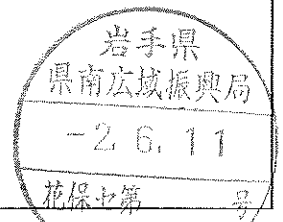 岩手県
県南広域振興局
-2.6.11
花保セ第 号